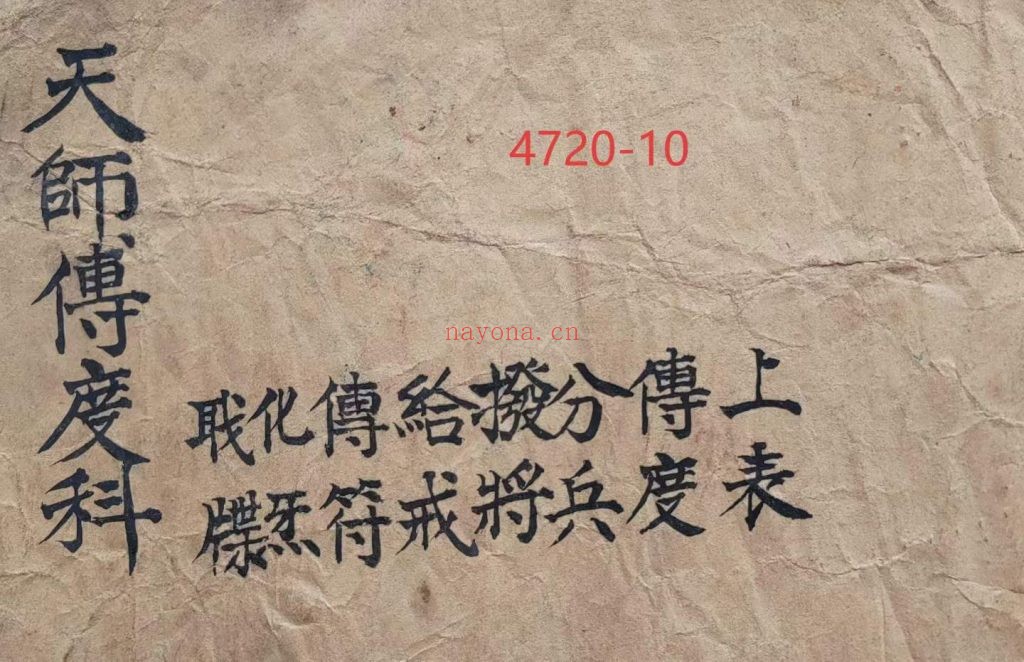 上表
傳度
分兵
撥將
給戒
傳符
化炁
職牒
天師傳度科
4720-10
nayona.cn